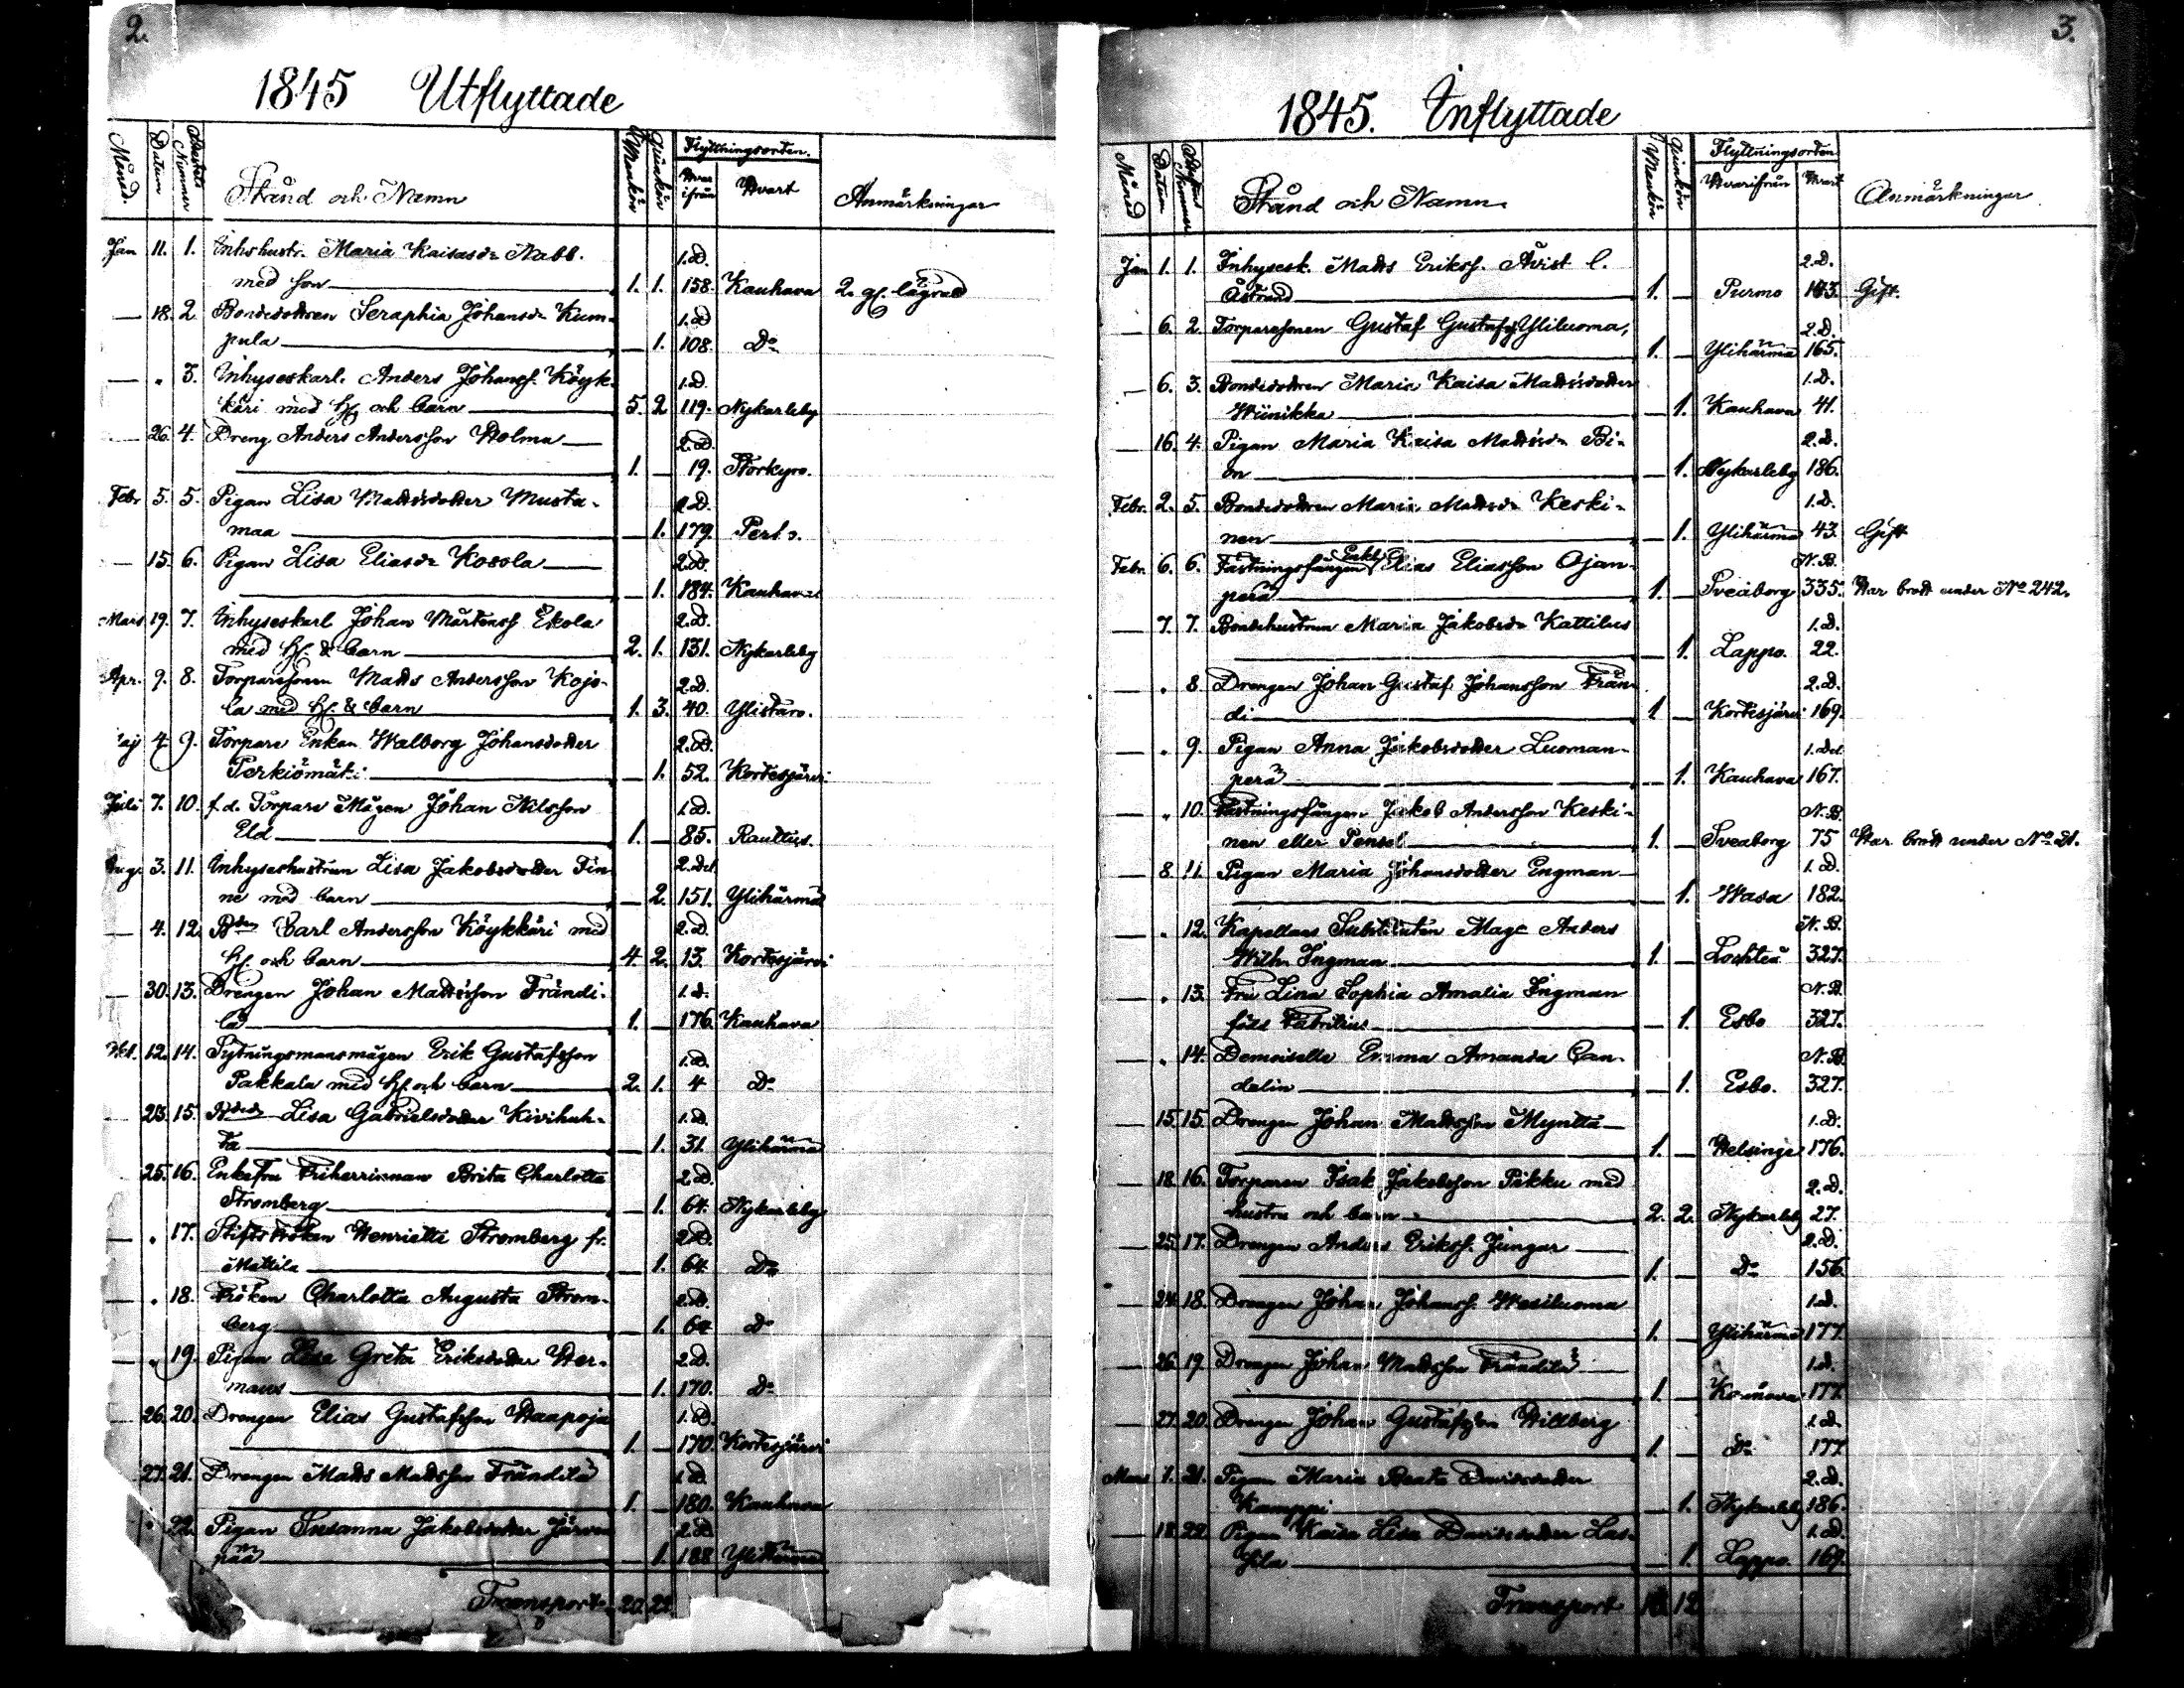 2.
1845 Utflyttade
Månad. Datum Nummer Stånd och Namn Mankön Qvinkön Flyttningsorten. Hvar ifrån Hvart Anmärkningar
Jan 11. 1. Inhs hustr. Maria Kaisasdr Nabb. 1.D.
med son 1. 1. 158. Kauhava 2. gr. lägrad
18. 2. Bondedottren Seraphia Johansdr Kum- 1.D
pula 1. 108. Do
" 3. Inhyseskarl. Anders Johanss. Köyk- 1.D.
käri med H. och barn 5. 2 119. Nykarleby
26. 4. Dreng Anders Andersson Holma 2.D.
1. 19. Storkyro.
Febr 5. 5. Pigan Lisa Mattsdotter Musta- D.
maa 1. 179.
15. 6. Pigan Lisa Eliasdr Kosola 2.D.
1. 184. Kauhava
Mars 19. 7. Inhyseskarl Johan Mårtenss Ekola 2.D.
med H. & barn 2. 1. 131. Nykarleby
Apr. 9. 8. Torparesonen Matts Andersson Kojo- 2.D.
la med H. & barn 1. 3. 40. Ylistaro.
Maj 4. 9. Torpare Enkan Walborg Johansdotter 2.D.
Perkiömäki 1. 52. Kortesjärvi
Juli 7. 10. f.d. Torpare Mågen Johan Nilsson 1.D.
Eld 1. 85. Rautus.
Aug. 3. 11. Inhyseshustrun Lisa Jakobsdotter Fin- 2.Del
ne med barn 2. 151. Ylihärmä
4. 12. Bden Carl Andersson Köykkäri med 2.D.
H. och barn 4. 2. 13. Kortesjärvi
30. 13. Drengen Johan Mattsson Frändi- 1.D.
lä 1. 176. Kauhava
Okt. 12. 14. Sytningsmansmågen Erik Gustafsson 1.D.
Pakkala med H. och barn 2. 1. 4 Do
23. 15. Bdedr Lisa Gabrielsdotter Kivihuh- 1.D.
ta 1. 31. Ylihärmä
25. 16. Enkefru Friherrinnan Brita Charlotta 2.D.
Stromberg 1. 64. Nykarleby
" 17. Stiftsfröken Henriette Stromberg fr. 2.D.
Mattila 1. 64. Do
" 18. Fröken Charlotta Augusta Strom- 2.D.
berg 1. 64 Do
" 19. Pigan Lisa Greta Eriksdotter Her- 2.D.
mans 1. 170. Do
26. 20. Drengen Elias Gustafsson Haapoja 1.D.
1. 170. Kortesjärvi
27. 21. Drengen Matts Mattsson Frändilä 1.D.
1. 180. Kauhava
" 22. Pigan Susanna Jakobsdotter Järven- 2.D
pää 1. 188 Ylihärmä
Transport. 20. 22
3.
1845. Inflyttade
Månad Datum Nummer Stånd och Namn Mankön Qvinkön Flyttningsorten Hvarifrån Hvart Anmärkningar
Jan 1. 1. Inhysesk. Matts Erikss. Qvist l. 2.D.
Åstrand 1. Purmo Gift.
6. 2. Torparesonen Gustaf Gustafss Yliluoma, 2.D.
1. Ylihärmä 165.
6. 3. Bondedottren Maria Kaisa Mattsdotter 1.D.
Wiinikka 1. Kauhava 41.
16. 4. Pigan Maria Kaisa Mattsdr Bi- 2.D.
on 1. Nykarleby 186.
Febr. 2. 5. Bondedottren Maria Mattsdr Keski- 1.D.
nen 1. Ylihärmä 43. Gift
Febr. 6. 6. Fästningsfången Enkl. Elias Eliasson Ojan- N.B.
perä 1. Sveaborg 335. Har brott under No 242.
7. 7. Bondehustrun Maria Jakobsdr Kattilus 1.D.
1. Lappo. 22.
" 8. Drengen Johan Gustaf Johansson Frän- 2.D.
di 1 Kortesjärvi 169.
" 9. Pigan Anna Jakobsdotter Luoman- 1.Del
perä 1. Kauhava 167.
" 10. Fästningsfången Jakob Andersson Keski- N.B.
nen eller Pensel 1. Sveaborg 75 Har brott under No 21.
8. 11. Pigan Maria Johansdotter Engman 1.D.
1. Wasa 182.
" 12. Kapellans Substituten Mag. Anders N.B.
Wilh. Ingman 1. Lochteå 327.
" 13. Fru Lina Sophia Amalia Ingman N.B.
född Fabritius 1. Esbo 327.
" 14. Demoiselle Emma Amanda Can- N.B.
delin 1. Esbo. 327.
15. 15. Drengen Johan Mattsson Mynttä 1.D.
1. Helsinge 176.
18. 16. Torparen Isak Jakobsson Pikku med 2.D.
hustru och barn 2. 2. Nykarleby 27.
25. 17. Drengen Anders Erikss. Jungar 2.D.
1. Do 156.
24. 18. Drengen Johan Johanss. Wesiluoma 1.D.
1. Ylihärmä 177.
26. 19. Drengen Johan Mattsson Frändilä 1.D.
1. 177.
27. 20. Drengen Johan Gustafsson Willberg 1.D.
1. Do 177.
Mars 1. 21. Pigan Maria Beata Davidsdotter 2.D.
Kamppi 1. Nykarleby 186.
18. 22. Pigan Kaisa Lisa Davidsdotter Las- 1.D.
sila 1. Lappo. 169.
Transport 12